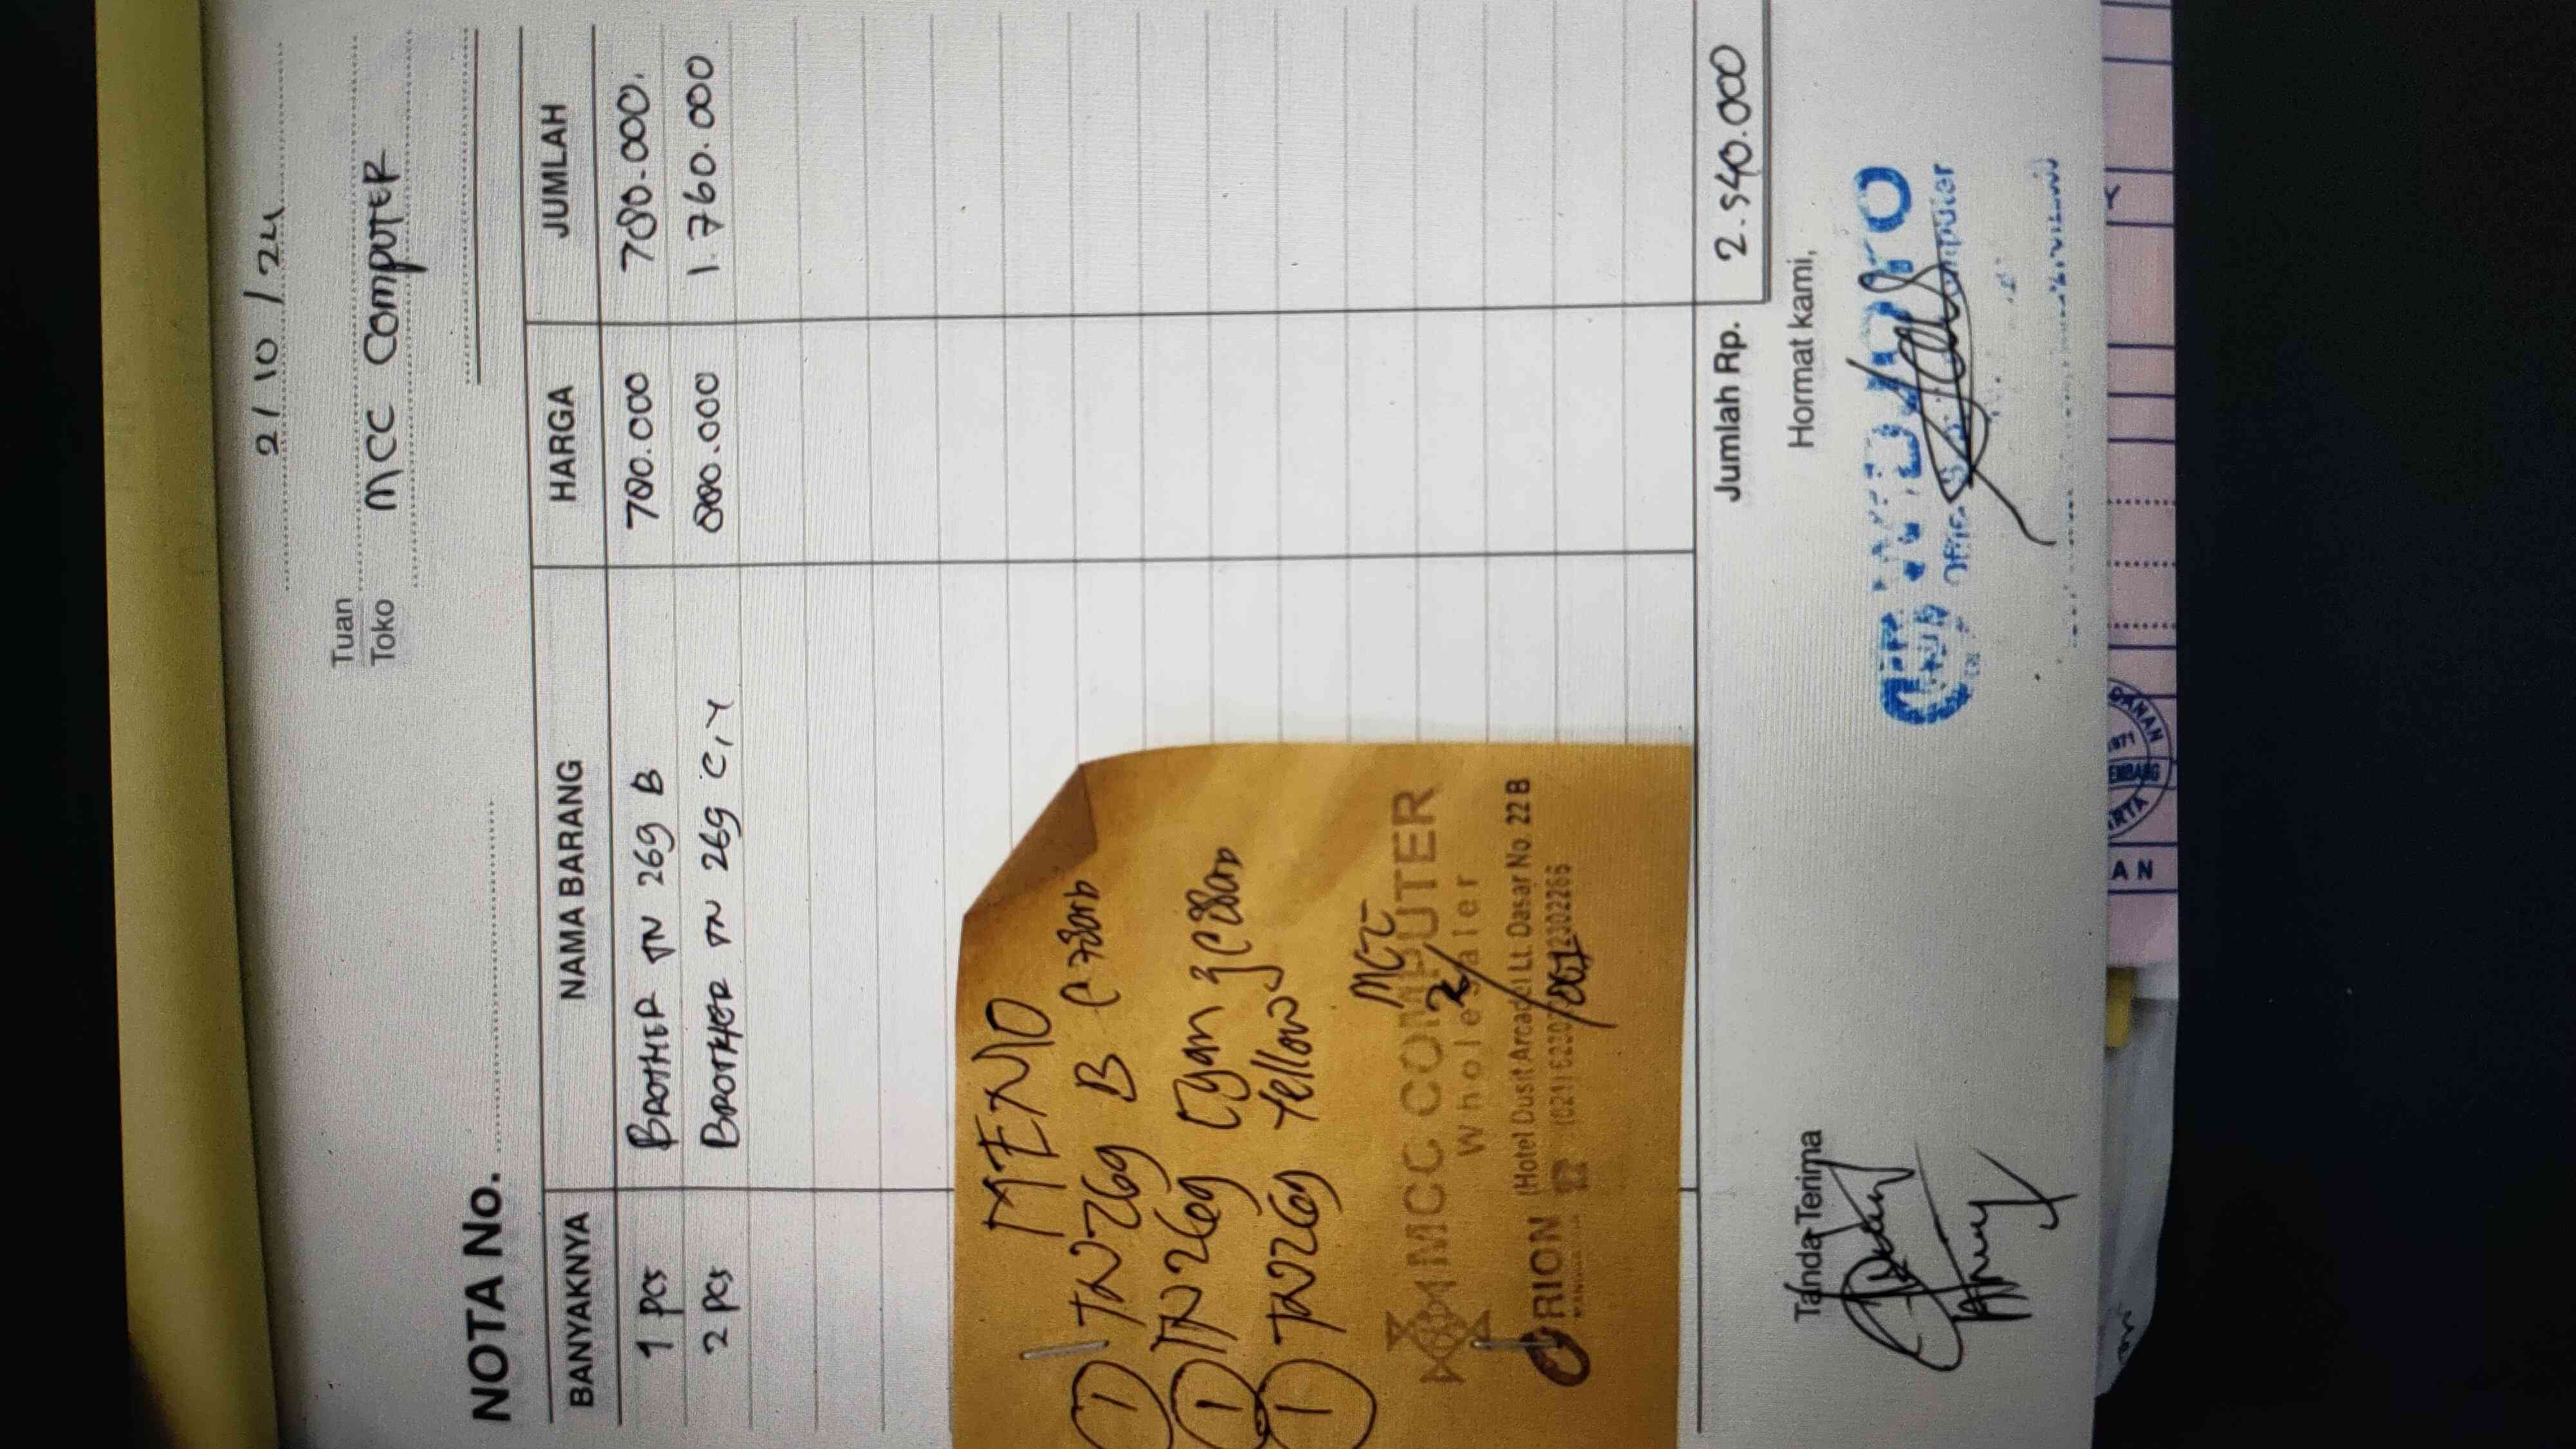 2/10/24
Tuan
Toko MCC COMPUTER
NOTA No.
BANYAKNYA NAMA BARANG HARGA JUMLAH
1 PCS BROTHER TN 269 B 780.000 780.000.
2 PCS BROTHER TN 269 C,Y 880.000 1.760.000
MEMO
1 TN269 B C 780rb
1 TN269 Cyan
1 TN269 Yellow
MCC
MCC COMPUTER
Wholesaler
ORION (Hotel Dusit Arcade Lt. Dasar No. 22 B
Jumlah Rp. 2.540.000
Tanda Terima Hormat kami,
AN